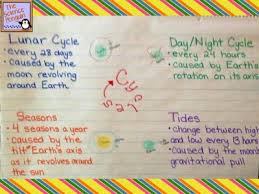 The Science Penguin
Lunar Cycle
• every 28 days
• caused by the
moon revolving
around Earth
Day/Night Cycle
• every 24 hours
• caused by Earth's
rotation on its axis
Cycles
Seasons
• 4 seasons a year
• caused by the
tilt Earth's axis
as it revolves around
the sun
Tides
• change between high
and low every 6 hours
• Caused by the moon's
gravitational pull